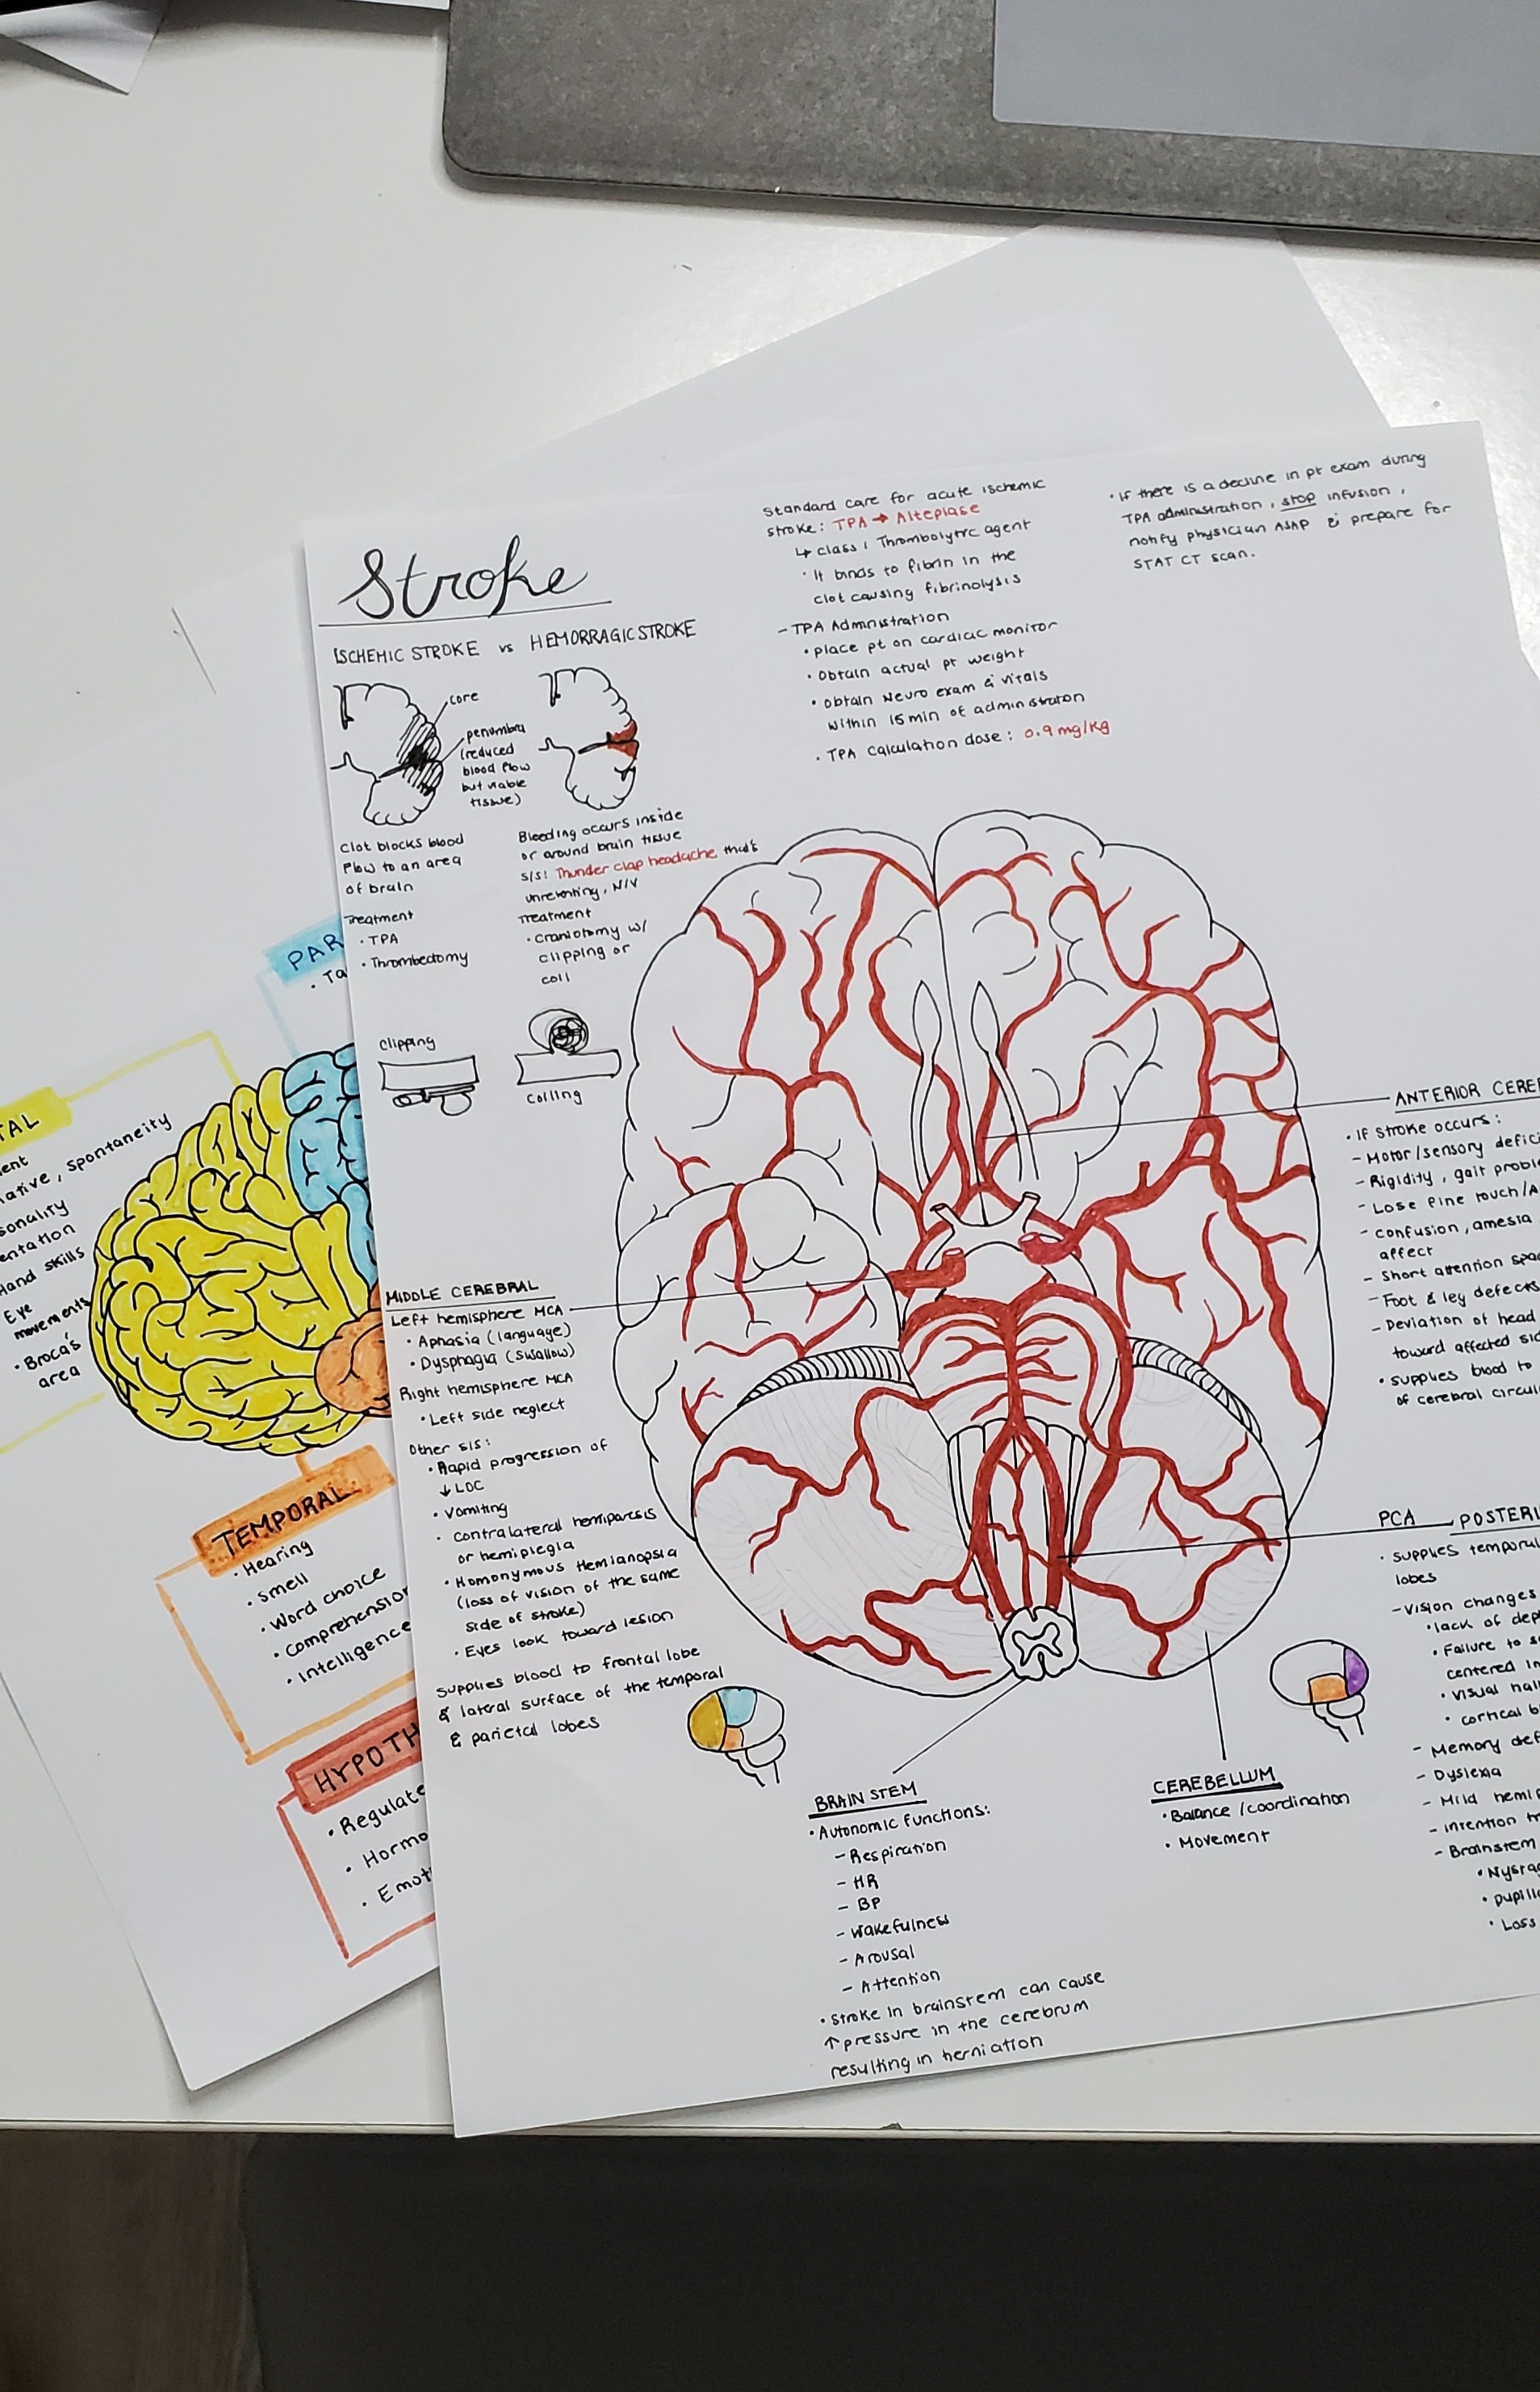 Stroke
ISCHEMIC STROKE vs HEMORRAGIC STROKE
core
penumbra
(reduced
blood flow
but viable
tissue)
Clot blocks blood
flow to an area
of brain
Treatment
· TPA
· Thrombectomy
Bleeding occurs inside
or around brain tissue
s/s: Thunder clap headache that's
unrelenting, N/V
Treatment
· craniotomy w/
clipping or
coil
clipping
coiling
Standard care for acute ischemic
stroke: TPA → Alteplase
↳ class: Thrombolytic agent
· It binds to fibrin in the
clot causing fibrinolysis
- TPA Administration
· place pt on cardiac monitor
· Obtain actual pt weight
· obtain Neuro exam & vitals
within 15 min of administration
· TPA calculation dose: 0.9 mg/kg
· If there is a decline in pt exam during
TPA administration, stop infusion,
notify physician ASAP & prepare for
STAT CT scan.
MIDDLE CEREBRAL
Left hemisphere MCA
· Aphasia (language)
· Dysphagia (swallow)
Right hemisphere MCA
· Left side neglect
Other s/s:
· Rapid progression of
↓ LOC
· Vomiting
· contralateral hemiparesis
or hemiplegia
· Homonymous Hemianopsia
(loss of vision of the same
side of stroke)
· Eyes look toward lesion
supplies blood to frontal lobe
& lateral surface of the temporal
& parietal lobes
ANTERIOR CERE
· If stroke occurs:
- Motor/sensory defic
- Rigidity, gait proble
- Lose fine touch/
- confusion, amesia
affect
- Short attention spa
- Foot & leg defects
- Deviation of head
toward affected sid
· supplies blood to
of cerebral circul
PCA
POSTERI
· supplies temporal
lobes
- Vision changes
· lack of dep
· Failure to s
centered in
· visual hal
· cortical b
- Memory def
- Dyslexia
- Mild hemi
- intention tr
- Brainstem
· Nystag
· pupill
· Loss
BRAIN STEM
· Autonomic functions:
- Respiration
- HR
- BP
- Wakefulness
- Arousal
- Attention
· stroke in brainstem can cause
↑ pressure in the cerebrum
resulting in herniation
CEREBELLUM
· Balance/coordination
· Movement
PAR
· Ta
TAL
ent
ative, spontaneity
sonality
entation
Hand skills
Eye
movements
· Broca's
area
TEMPORAL
· Hearing
· Smell
· Word choice
· Comprehension
· Intelligence
HYPOTH
· Regulate
· Hormo
· Emot